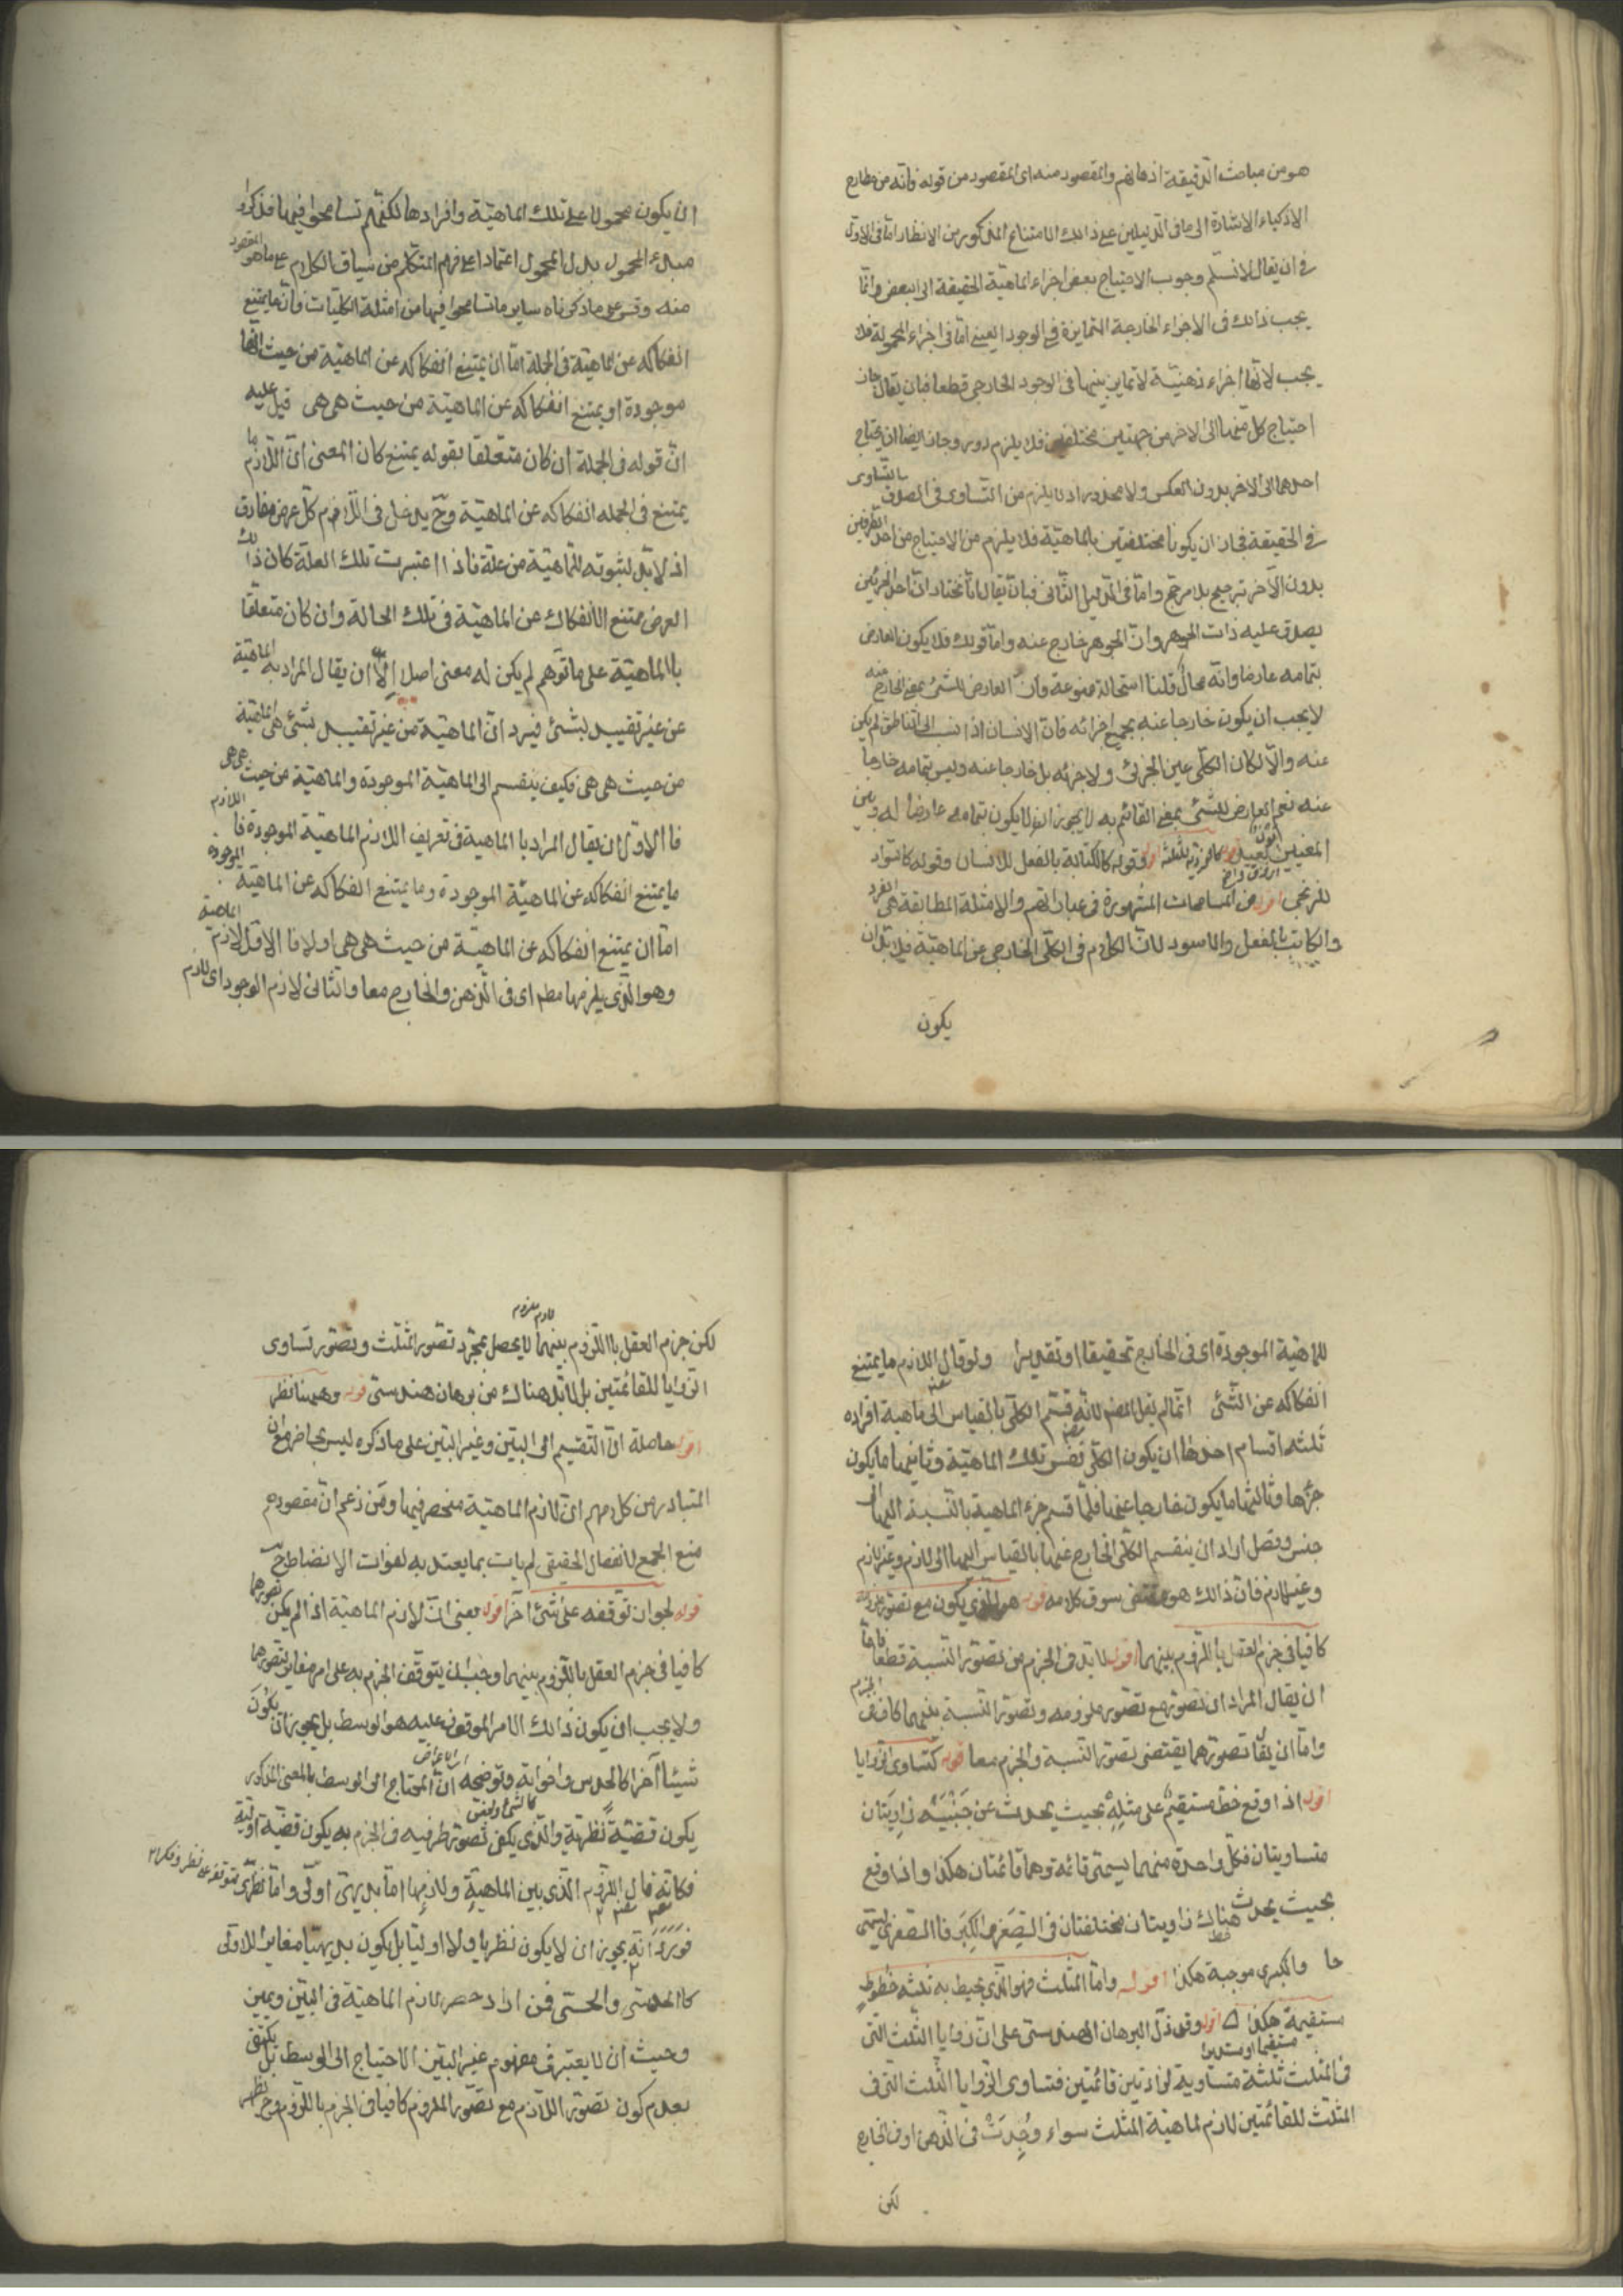 هو من مباحث الدقيقة اذهانهم والمقصود منه اى المقصود من قوله وانه من مطارح
الاذكياء الاشارة الى ما فى الدليلين على ذالك الامتناع المذكور من الانظار اما فى الاول
فبان يقال لا نسلم وجوب الاحتياج بعض اجزاء الماهية الحقيقة الى البعض وانما
يجب ذالك فى الاجزاء الخارجة المتمايزة فى الوجود العينى اما فى اجزاء المحمولة فلا
يجب لانها اجزاء ذهنية لا تمايز بينها فى الوجود الخارجى قطعا فبان يقال جاز
احتياج كل منهما الى الاخر من جهتين مختلفتين فلا يلزم دور وجاز ايضا ان يحتاج
احدهما الى الاخر بدون العكس ولا محذور اذ لا يلزم من التساوى فى الصدق التساوى
فى الحقيقة فجاز ان يكونا مختلفتين بالماهية فلا يلزم من الاحتياج من احد الطرفين
بدون الآخر ترجيح بلا مرجح واما فى الدليل الثانى فبان يقال انا نختار ان احد الجزئين
يصدق عليه ذات الجوهر وان الجوهر خارج عنه واما قولك فلا يكون العارض
بتمامه عارضا وانه محال قلنا استحالة ممنوعة وان العارض للشئ بمعنى الخارج عنه
لا يجب ان يكون خارجا عنه بجميع اجزائه فان الانسان اذا نسب الى الناطق لم يكن
عنه والا لكان الكلى عين الجزئى ولا جزئه بل خارجا عنه وليس بتمامه خارجا
عنه نعم العارض للشئ بمعنى القائم به لا يجوز ان لا يكون بتمامه عارضا له وبين
المعنيين بعيد قوله كالفردية للثلثة اقول وقوله كالكتابة بالفعل للانسان وقوله كالسواد
للزنجى اقول من المسامحات المشهورة فى عباراتهم والامثلة المطابقة هى الفرد
والكاتب بالفعل والاسود لان الكلام فى الكلى الخارجى عن الماهية فلا بد ان
يكون
ان يكون محمولا على تلك الماهية وافرادها لكنهم تسامحوا فيها فذكروا
مبدء المحمول بدل المحمول اعتمادا على فهم المتكلم من سياق الكلام على ما هو المقصود
منه وقس على ما ذكرناه ساير ما تسامحوا فيها من امثلة الكليات وان ما يمتنع
انفكاكه عن الماهية فى الجملة اما ان يمتنع انفكاكه عن الماهية من حيث انها
موجودة او يمتنع انفكاكه عن الماهية من حيث هى هى قيل عليه
ان قوله فى الجملة ان كان متعلقا بقوله يمتنع كان المعنى ان اللازم ما
يمتنع فى الجملة انفكاكه عن الماهية وح يدخل فى اللازم كل عرض مفارق
اذ لا بد لثبوته للماهية من علة فاذا اعتبرت تلك العلة كان ذالك
العرض ممتنع الانفكاك عن الماهية فى تلك الحالة وان كان متعلقا
بالماهية على ما توهم لم يكن له معنى اصلا الا ان يقال المراد به الماهية
عن غير تقييد بشئ فيرد ان الماهية من غير تقييد بشئ هى الماهية
من حيث هى هى فكيف ينقسم الى الماهية الموجودة والماهية من حيث هى هى
فالاولى ان يقال المراد بالماهية فى تعريف اللازم الماهية الموجودة فاللازم
ما يمتنع انفكاكه عن الماهية الموجودة وما يمتنع انفكاكه عن الماهية الموجودة
اما ان يمتنع انفكاكه عن الماهية من حيث هى هى او لا فالاول لازم الماهية
وهو الذى يلزمها مطم اى فى الذهن والخارج معا والثانى لازم الوجود اى لازم
للماهية الموجودة اى فى الخارج تحقيقا او تقديرا ولو قال اللازم ما يمتنع
انفكاكه عن الشئ انما لم يقل المصنف لانه قسم الكلى بالقياس الى ماهية افراده
ثلثه اقسام احدها ان يكون الكلى نفس تلك الماهية وثانيها ما يكون
جزئها وثالثها ما يكون خارجا عنها فلما قسم جزء الماهية بالنسبة اليها الى
جنس وفصل اراد ان ينقسم الكلى الخارج عنها بالقياس اليها الى لازم وغير لازم
وغير لازم فان ذالك هو مقتضى سوق كلامه قوله هو الذى يكون مع تصور ملزومه
كافيا فى جزم العقل باللزوم بينهما اقول لا بد فى الجزم من تصور النسبة قطعا فاما
ان يقال المراد ان تصوره مع تصور ملزومه وتصور النسبة بينهما كاف فى الجزم
واما ان يقال تصورهما يقتضى تصور النسبة والجزم معا قوله كتساوى الزوايا
اقول اذا وقع خط مستقيم على مثله بحيث يحدث عن جنبيه زاويتان
متساويتان فكل واحدة منهما يسمى قائمة وهما قائمتان هكذا واذا وقع
بحيث يحدث هناك زاويتان مختلفتان فى الصغر والكبر فالصغرى يسمى
حا والكبرى موجبة هكذا اقول واما المثلث فهو الذى يحيط به ثلثه خطوط
مستقيمة هكذا اقول وقد دل البرهان الهندسى على ان زوايا الثلث التى
مستقيما او مستديرا
فى المثلث ثلثة متساوية لزاويتين قائمتين فتساوى الزوايا الثلث التى فى
المثلث للقائمتين لازم لماهية المثلث سواء وجدت فى الذهن او فى الخارج
لكن
لازم ملزوم
لكن جزم العقل باللزوم بينهما لا يحصل بمجرد تصور المثلث وتصور تساوى
الزوايا للقائمتين بل لا بد هناك من برهان هندسى قوله وههنا نظر
اقول حاصله ان التقسيم الى البين وغير البين على ما ذكره ليس بحاضر مع ان
المتبادر من كلامهم ان لازم الماهية منحصر فيهما ومن زعم ان مقصوده
منع الجمع لانفصال الحقيقى لم يات بما يعتد به لفوات الانضباط ح
قوله لجواز توقفه على شئ آخر اقول يعنى ان لازم الماهية اذا لم يكن تصورهما
كافيا فى جزم العقل باللزوم بينهما وجب ان يتوقف الجزم به على امر مغاير لتصورهما
ولا يجب ان يكون ذالك الامر الموقوف عليه هو الوسط بل يجوز ان يكون
شيئا آخر كالحدس واخواته وتوضحه ان المحتاج الى الوسط بالمعنى المذكور
يكون قضية نظرية والذى يكفى تصور طرفيه فى الجزم به يكون قضية اولية
فكانه قال اللزوم الذى بين الماهية ولازمها اما بديهى اولى واما نظرى يتوقف على نظر وفكر
فورد انه يجوز ان لا يكون نظريا ولا اوليا بل يكون بديهيا مغايرا للاولى
كالحدسى والحسى فمن اراد حصر لازم الماهية فى البين وغير البين
وحيث ان لا يعتبر فى مفهوم غير البين الاحتياج الى الوسط بل يكتفى
بعدم كون تصور اللازم مع تصور الملزوم كافيا فى الجزم باللزوم وح يظهر